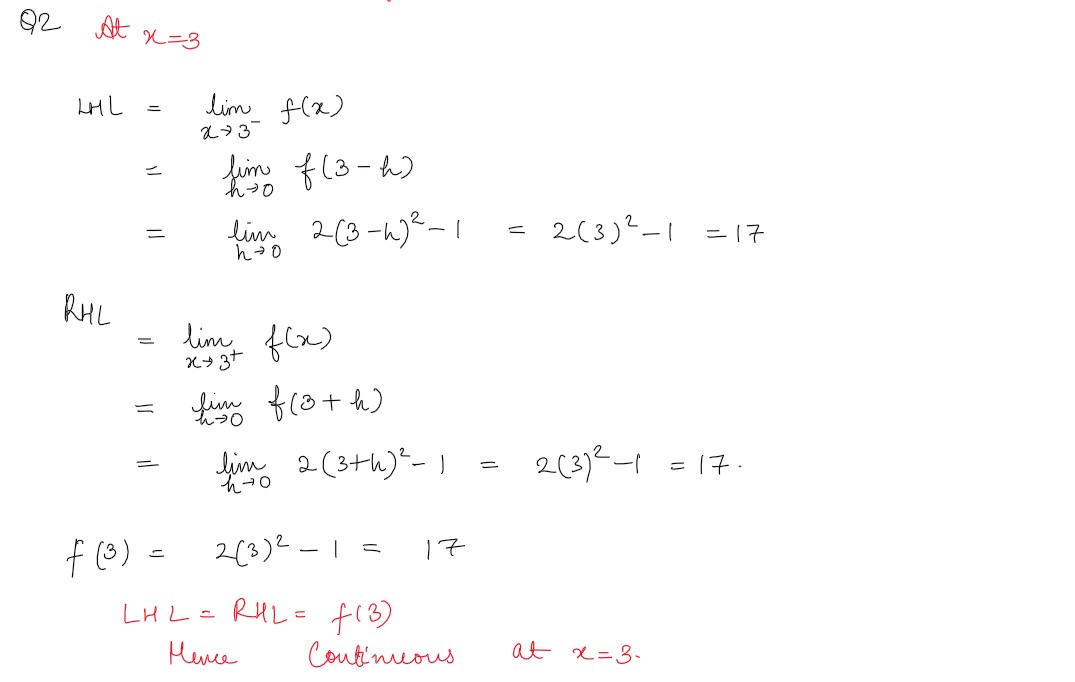 Q2 At x=3
LHL = lim x→3⁻ f(x)
= lim h→0 f(3-h)
= lim h→0 2(3-h)²-1 = 2(3)²-1 = 17
RHL
= lim x→3⁺ f(x)
= lim h→0 f(3+h)
= lim h→0 2(3+h)²-1 = 2(3)²-1 = 17.
f(3) = 2(3)²-1 = 17
LHL = RHL = f(3)
Hence Continuous at x=3.